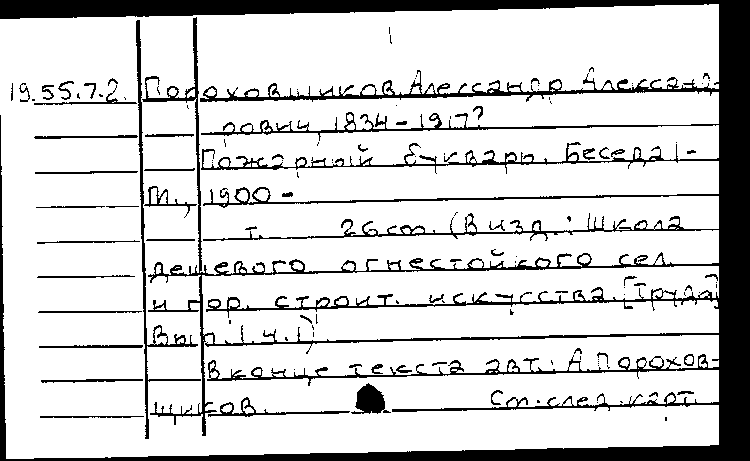 19.55.7.2. Пороховщиков, Алессандр Александ-
рович, 1834-1917?
Пожарный букварь. Беседа 1-
М., 1900-
т. 26 cm. (В изд.: Школа
дешевого огнестойкого сел.
и гор. строит. искусства. [Труды]
Вып. 1. ч. 1)
В конце текста авт.: А. Порохов-
щиков. См. след. карт.